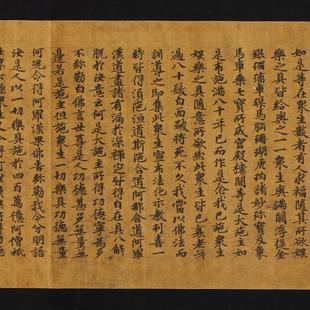 如是等在衆生數者有人求福隨其所欲娛
樂之具皆給與之一一衆生與滿閻浮提金
銀琉璃車璖馬腦珊瑚虎珀諸妙珍寶及象
馬車乘七寶所成宮殿樓閣等是大施主如
是布施滿八十年已而作是念我已施衆生
娛樂之具隨意所欲然此衆生皆已衰老年
過八十髮白面皺將死不久我當以佛法而
訓導之即集此衆生宣布法化示教利喜一
時皆得須陀洹道斯陀含道阿那含道阿羅
漢道盡諸有漏於深禪定皆得自在具八解
脫於汝意云何是大施主所得功德寧爲多
不弥勒白佛言世尊是人功德甚多無量無
邊若是施主但施衆生一切樂具功德無量
何況令得阿羅漢果佛告弥勒我今分明語
汝是人以一切樂具施於四百萬億阿僧祇